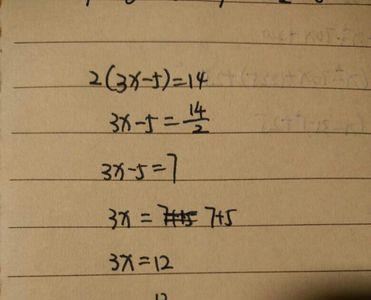 2(3x-5)=14
3x-5=14/2
3x-5=7
3x=7+5
3x=12